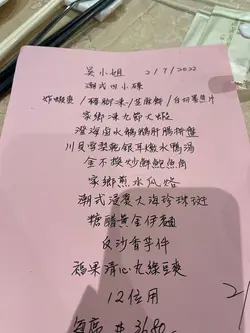 吳小姐 2/7/2022
潮式四小碟
炸蝦棗/豬腳凍/芝麻餅/白切薯魚片
家鄉凍九節大蝦
澄海卤水鵝鵝肝腸拼盤
川貝雪梨舵銀耳燉水鴨湯
金不換炒鮮鮑魚角
家鄉煎水瓜烙
潮式浸裹大海珍珠斑
糖醋黃金伊麵
反沙香芋件
福果清心丸綠豆爽
12位用
每席 $3680
2/